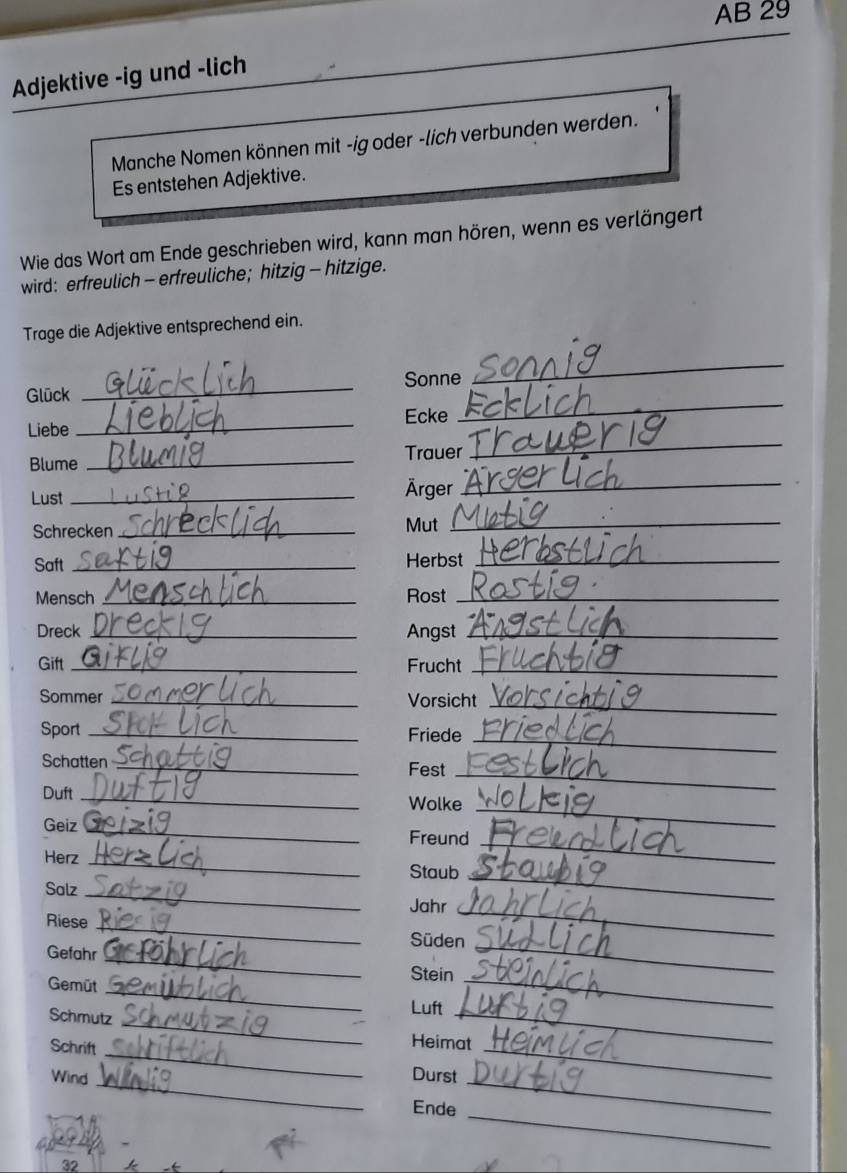 AB 29
Adjektive -ig und -lich
Manche Nomen können mit -ig oder -lich verbunden werden.
Es entstehen Adjektive.
Wie das Wort am Ende geschrieben wird, kann man hören, wenn es verlängert
wird: erfreulich – erfreuliche; hitzig – hitzige.
Trage die Adjektive entsprechend ein.
Glück Glücklich
Liebe Lieblich
Blume Blumig
Lust Lustig
Schrecken Schrecklich
Saft saftig
Mensch Menschlich
Dreck Dreckig
Gift Giftig
Sommer sommerlich
Sport
Schatten Schattig
Duft Duftig
Geiz Geizig
Herz Herzlich
Salz Satzig
Riese Riesig
Gefahr Gefährlich
Gemüt Gemütlich
Schmutz Schmutzig
Schrift Schriftlich
Wind Winig
Sonne sonnig
Ecke Ecklich
Trauer Trauerig
Ärger Ärgerlich
Mut Mutig
Herbst Herbstlich
Rost Rostig
Angst Ängstlich
Frucht Fruchtig
Vorsicht Vorsichtig
Friede Friedlich
Fest Festlich
Wolke Wolkig
Freund Freundlich
Staub Staubig
Jahr Jahrlich
Süden Südlich
Stein Steinlich
Luft Luftig
Heimat Heimlich
Durst Durtig
Ende
32